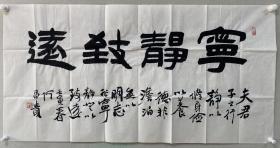 寧靜致遠
夫君
子之行
静以
修身俭
以養
德非
澹泊
無以
明志
非寧
静無以
致遠